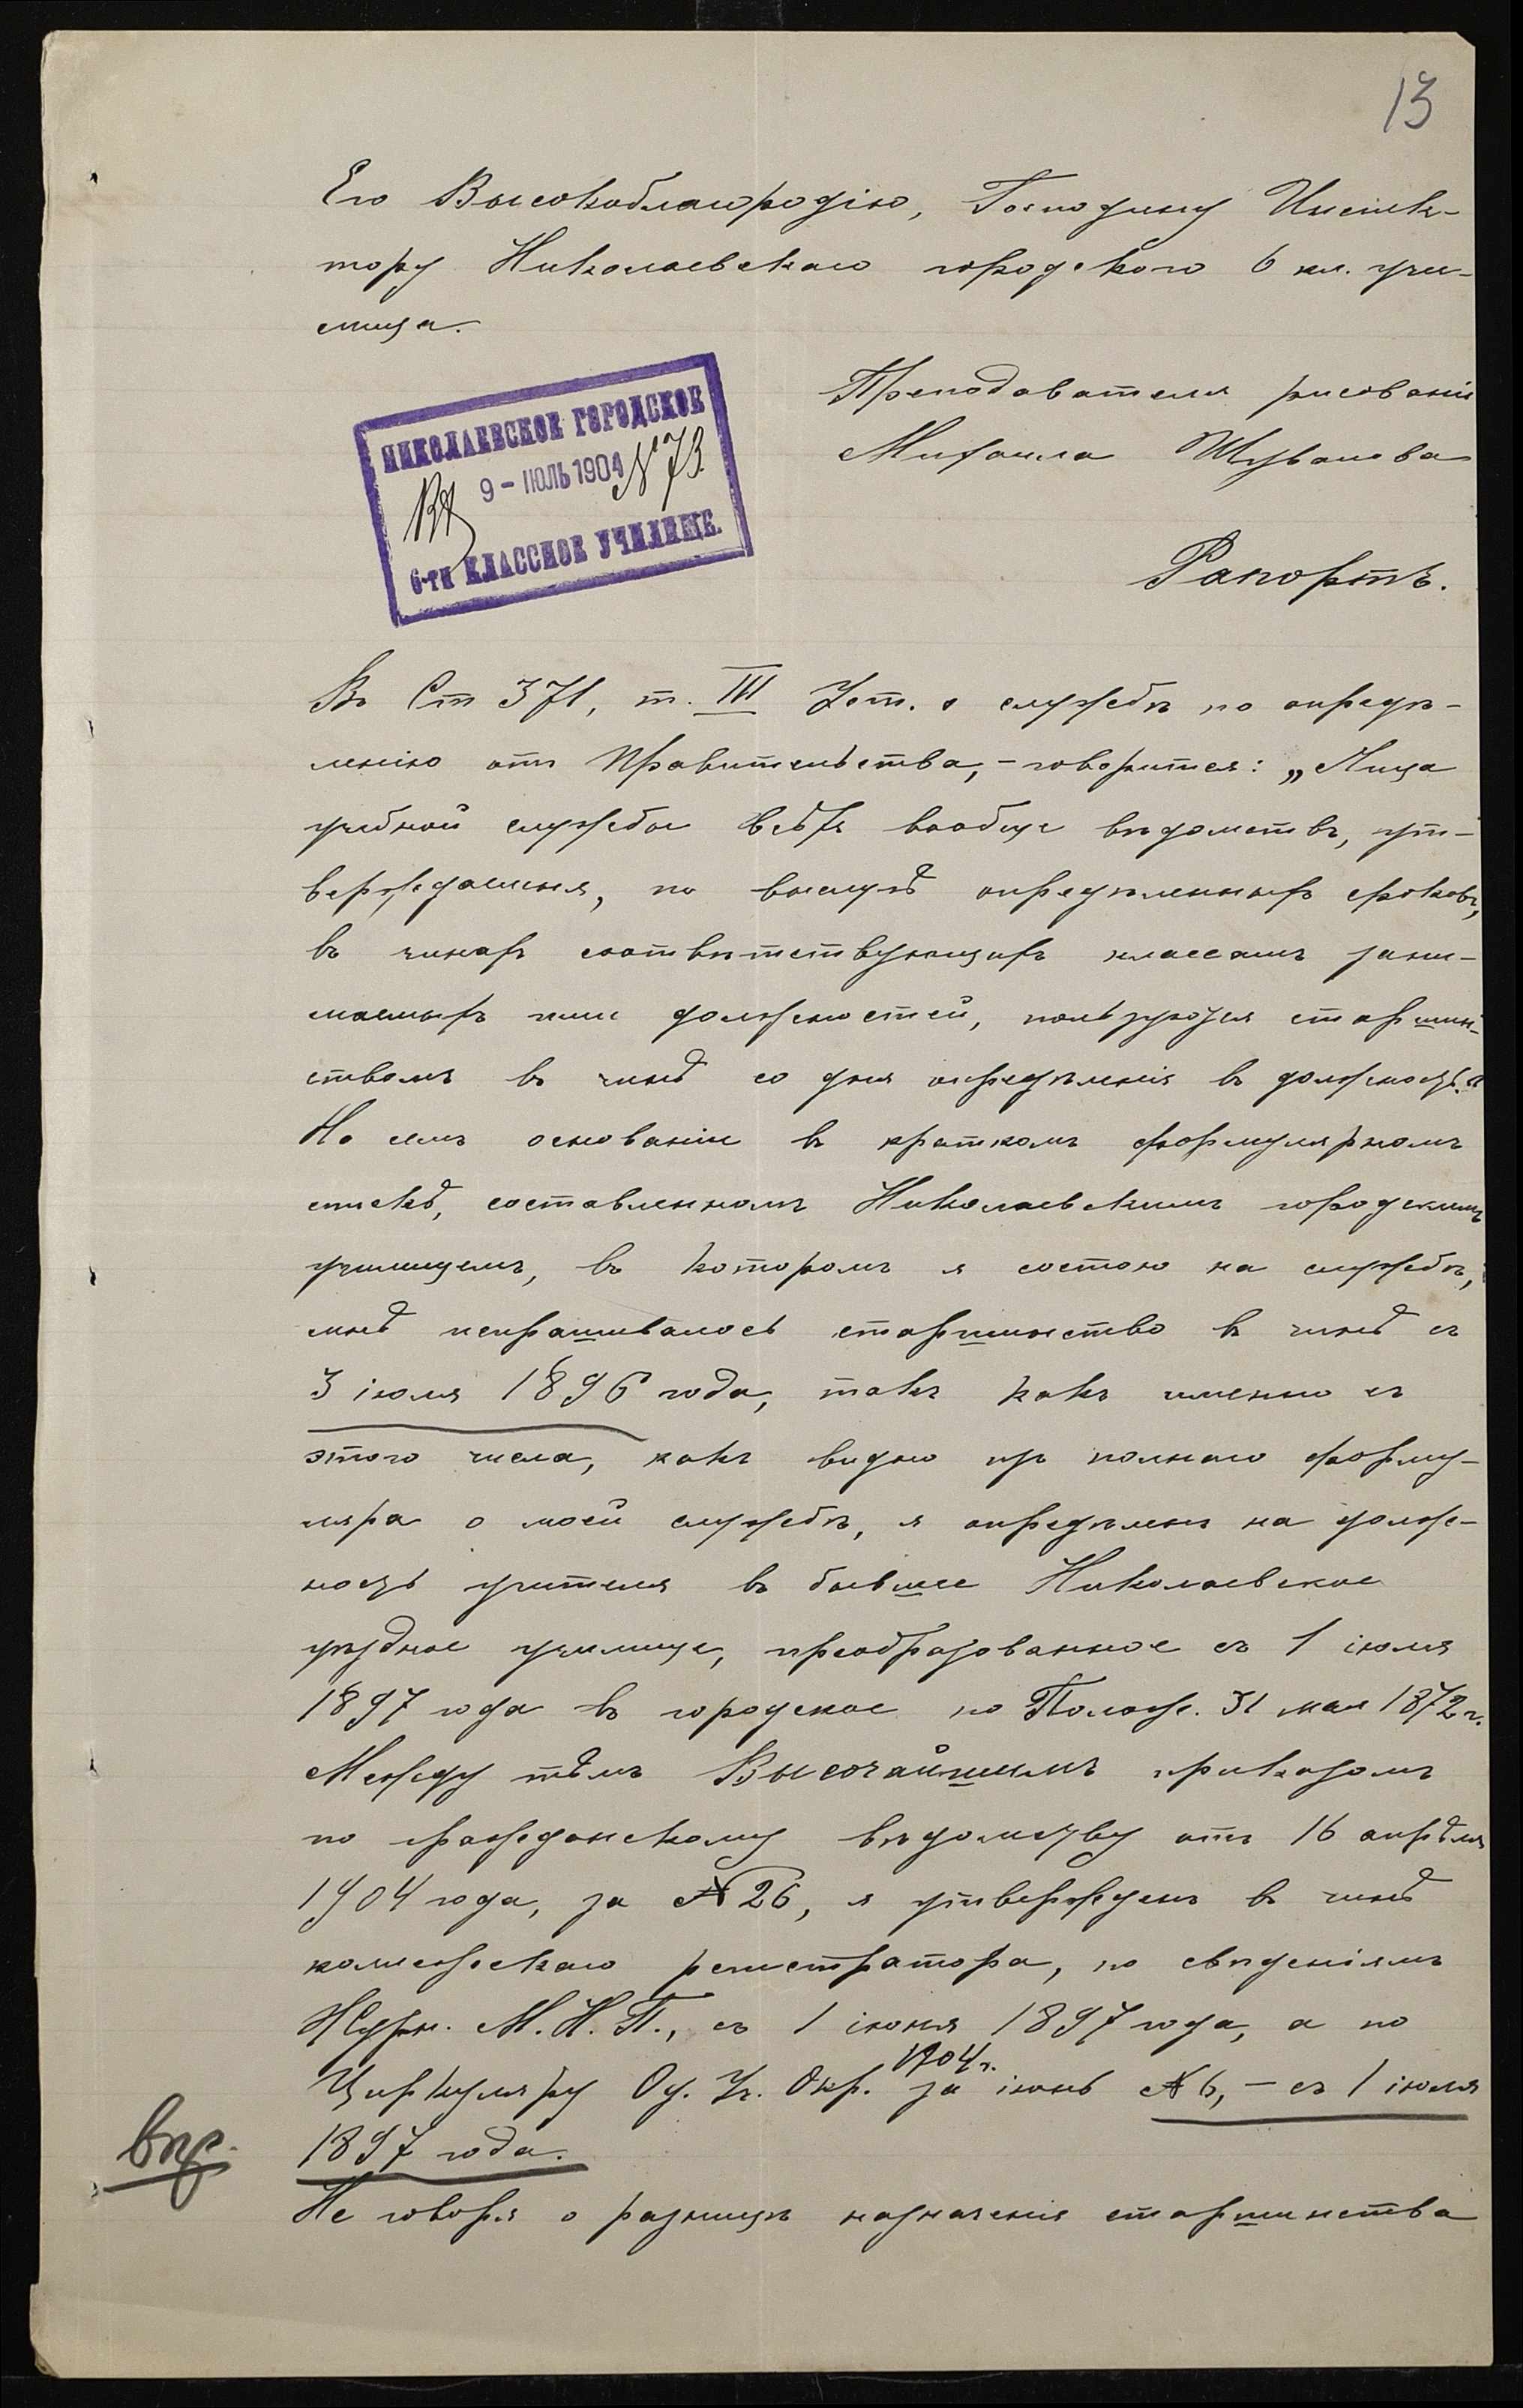 13
Его Высокоблагородію, Господину Инспек-
тору Николаевскаго городского 6 кл. учи-
лища.
Преподавателя рисованія
Михаила Шувалова
НИКОЛАЕВСКОЕ ГОРОДСКОЕ
Вх 9 - ІЮЛЬ 1904 № 73
6-ти КЛАССНОЕ УЧИЛИЩЕ.
Рапортъ.
Въ Ст 371, т. III Уст. о службѣ по опредѣ-
ленію отъ Правительства, - говорится: „Лица
учебной службы всѣхъ вообще вѣдомствъ, ут-
вержденныя, по выслугѣ опредѣленныхъ сроковъ,
въ чинахъ соотвѣтствующихъ классамъ зани-
маемыхъ ими должностей, пользуются старшин-
ствомъ въ чинѣ со дня опредѣленія въ должность."
На семъ основаніи въ краткомъ формулярномъ
спискѣ, составленномъ Николаевскимъ городскимъ
училищемъ, въ которомъ я состою на службѣ,
мнѣ испрашивалось старшинство въ чинѣ съ
3 іюля 1896 года, такъ какъ именно съ
этого числа, какъ видно изъ полнаго форму-
ляра о моей службѣ, я опредѣленъ на долж-
ность учителя въ бывшее Николаевское
уѣздное училище, преобразованное съ 1 іюля
1897 года въ городское по Полож. 31 мая 1872 г.
Между тѣмъ Высочайшимъ приказомъ
по гражданскому вѣдомству отъ 16 апрѣля
1904 года, за № 26, я утвержденъ въ чинѣ
коллежскаго регистратора, по свѣдѣніямъ
Журн. М. Н. П., съ 1 іюня 1897 года, а по
Циркуляру Од. Уч. Окр. за іюнь 1904 г. № 6, - съ 1 іюля
1897 года.
Не говоря о разницѣ назначенія старшинства